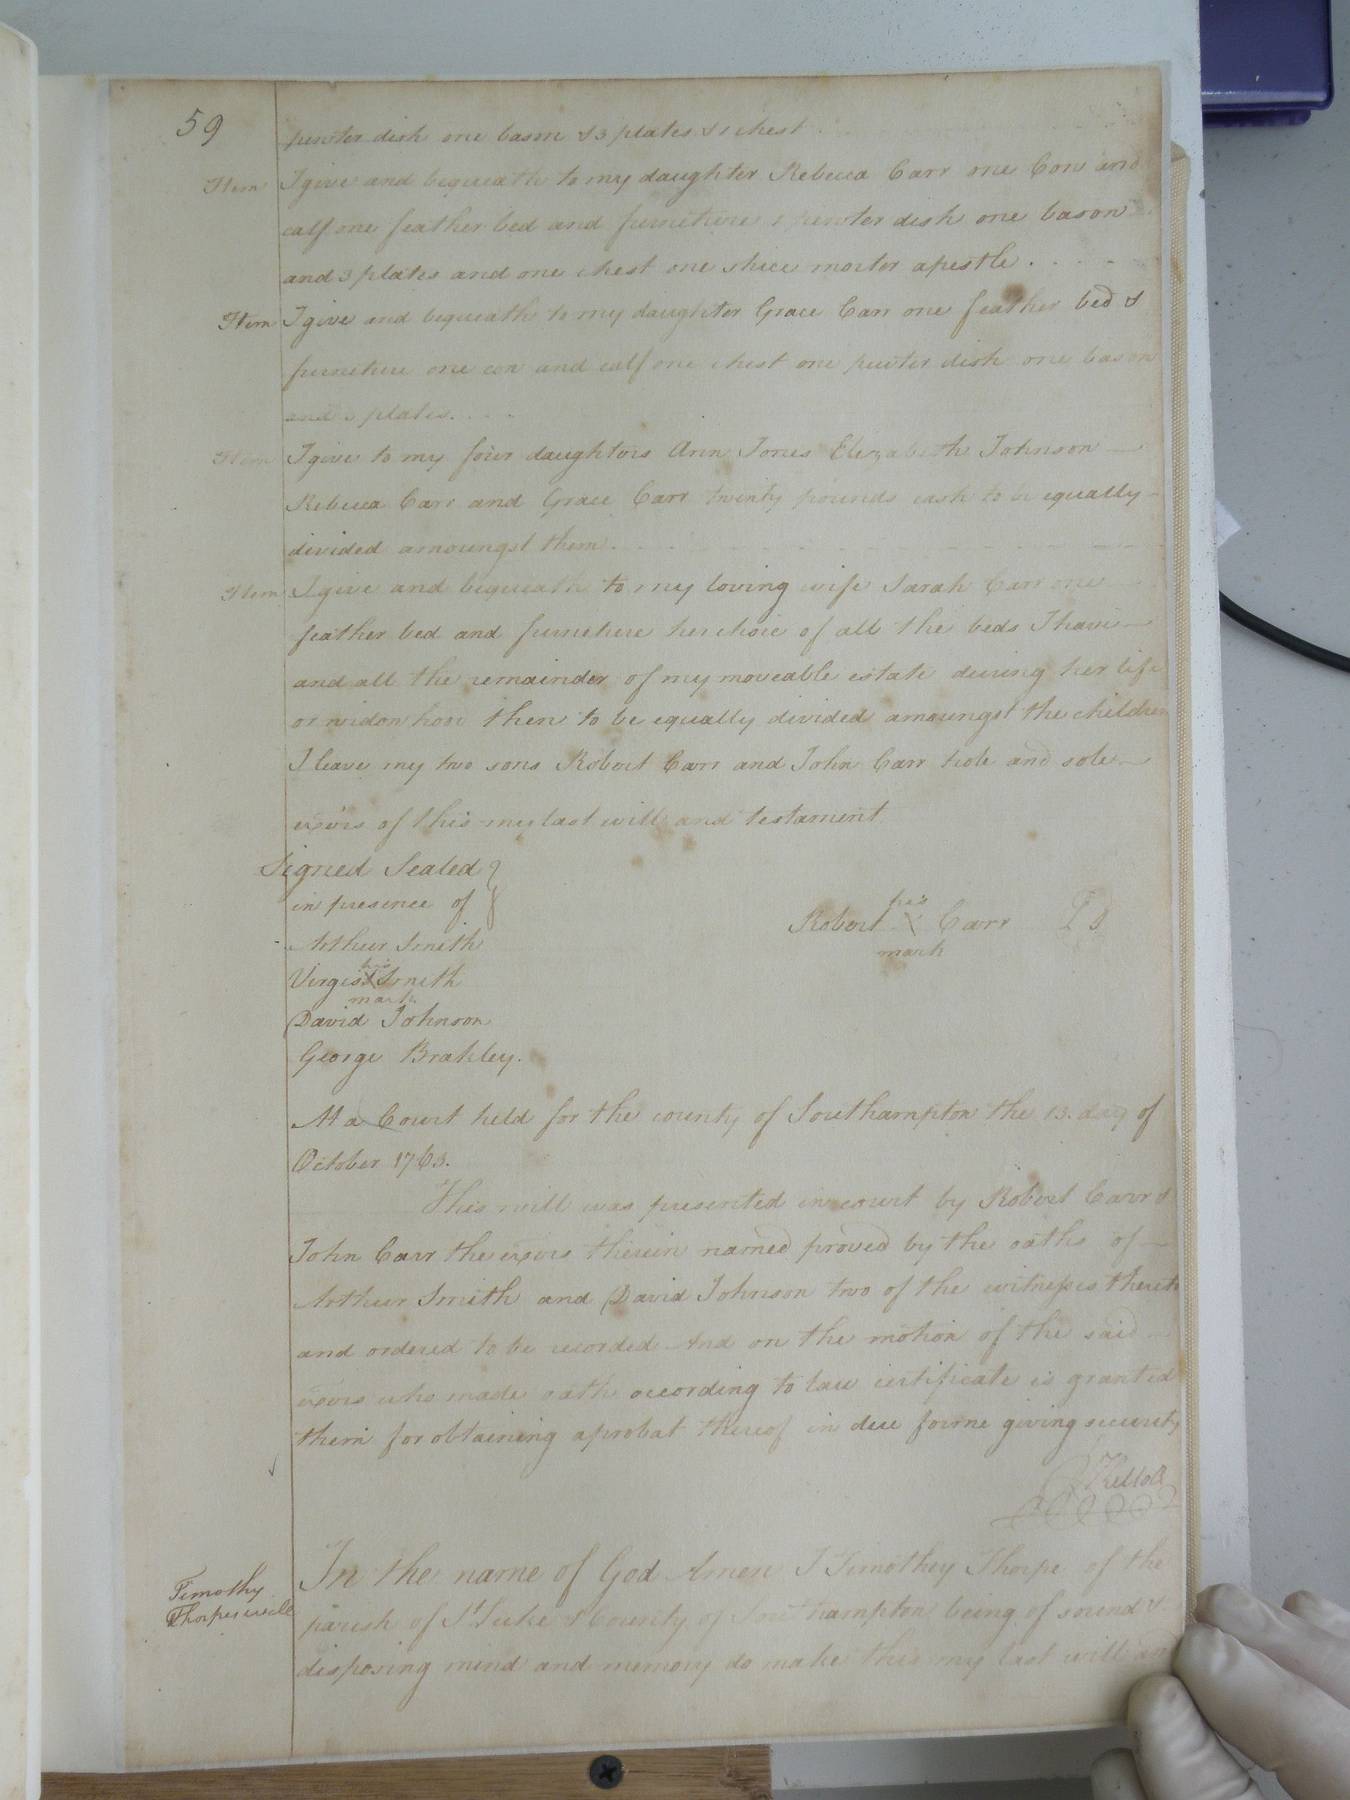 59
pewter dish one bason & 3 plates & 1 chest
Item I give and bequeath to my daughter Rebecca Carr one Cow and
calf one feather bed and furneture 1 pewter dish one bason
and 3 plates and one chest one spice morter a pestle . . . .
Item I give and bequeath to my daughter Grace Carr one feather bed &
furneture one cow and calf one chest one pewter dish one bason
and plates. . . .
Item I give to my four daughters Ann Jones Elezabeth Johnson —
Rebecca Carr and Grace Carr twenty pounds cash to be equally —
divided amoungst them.
Item I give and bequeath to my loving wife Sarah Carr one
feather bed and furneture her choice of all the beds I have —
and all the remainder of my moveable estate during her life
or widow hood then to be equally divided amoungst the children
I leave my two sons Robert Carr and John Carr hole and sole —
exors of this my last will and testament
Signed Sealed }
in presence of
his
Robert X Carr
mark
Arthur Smith
his
Smith
mark
David Johnson
George Brakley.
At a Court held for the county of Southampton the 13. day of
October 1763.
This will was presented in court by Robert Carr &
John Carr the exors therein named proved by the oaths of —
Arthur Smith and David Johnson two of the witnesses thereto
and ordered to be recorded And on the motion of the said —
exors who made oath according to law certificate is granted
them for obtaining a probat thereof in due forme giving security
Timothy
Thorpes will
In the name of God Amen I Timothy Thorpe of the
parish of St Luke & County of Southampton being of sound &
disposing mind and memory do make this my last will an